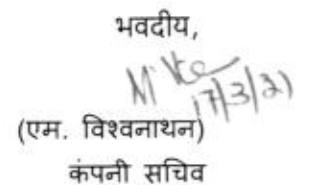 भवदीय,
17/3/21
(एम. विश्वनाथन)
कंपनी सचिव